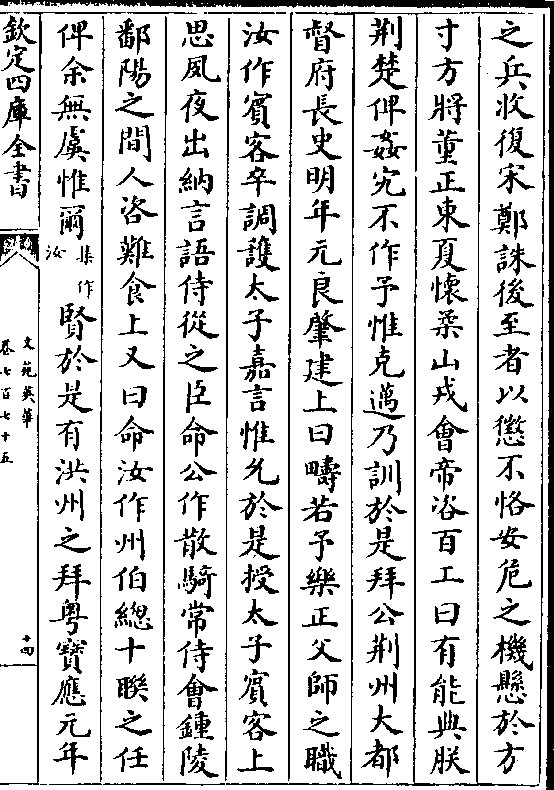 之兵收復宋鄭誅後至者以懲不恪安危之機懸於方
寸方將董正東夏懷柔山戎會帝咨百工曰有能典朕
荆楚俾姦宄不作予惟克邁乃訓於是拜公荆州大都
督府長史明年元良肇建上曰疇若予樂正父師之職
汝作賓客卒調護太子嘉言惟允於是授太子賓客上
思夙夜出納言語侍從之臣命公作散騎常侍會鍾陵
鄱陽之間人咨難食上又曰命汝作州伯總十聯之任
俾余無虞惟爾集作汝賢於是有洪州之拜粤寶應元年
欽定四庫全書
文苑英華
卷七百七十五
十四